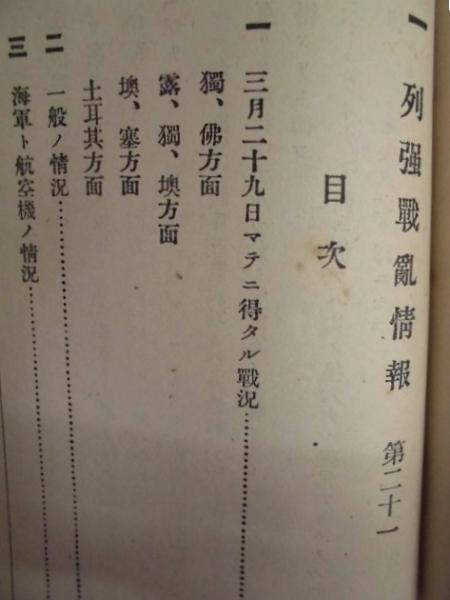 一 列强戰亂情報 第二十一
目次
一 三月二十九日マテニ得タル戰況
獨、佛方面
露、獨、墺方面
墺、塞方面
土耳其方面
二 一般ノ情況
三 海軍ト航空機ノ情況